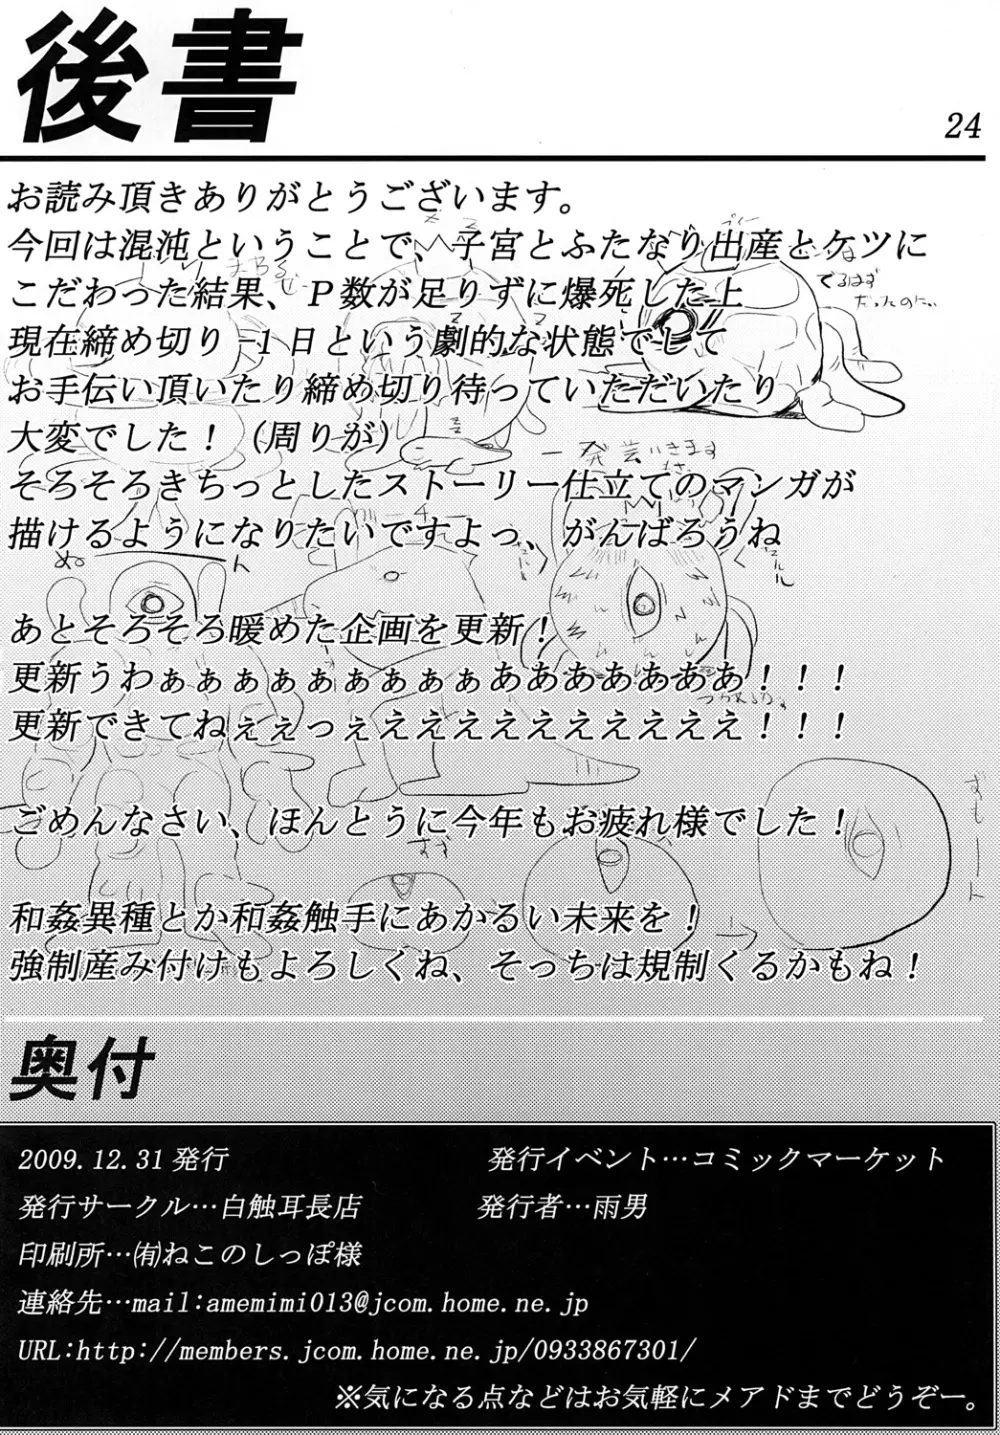 後書
24
お読み頂きありがとうございます。
今回は混沌ということで、子宮とふたなり出産とケツに
こだわった結果、P数が足りずに爆死した上
現在締め切り-1日という劇的な状態でして
お手伝い頂いたり締め切り待っていただいたり
大変でした！（周りが）
そろそろきちっとしたストーリー仕立てのマンガが
描けるようになりたいですよっ、がんばろうね
あとそろそろ暖めた企画を更新！
更新うわぁぁぁぁぁぁぁぁぁあああああああ！！！
更新できてねぇぇっぇええええええええええ！！！
ごめんなさい、ほんとうに今年もお疲れ様でした！
和姦異種とか和姦触手にあかるい未来を！
強制産み付けもよろしくね、そっちは規制くるかもね！
でるはず
だったのにい
一発芸いきます
ぬーん
すす
ずもーート
奥付
2009.12.31発行
発行イベント…コミックマーケット
発行サークル…白触耳長店
発行者…雨男
印刷所…㈲ねこのしっぽ様
連絡先…mail:amemimi013@jcom.home.ne.jp
URL:http://members.jcom.home.ne.jp/0933867301/
※気になる点などはお気軽にメアドまでどうぞー。